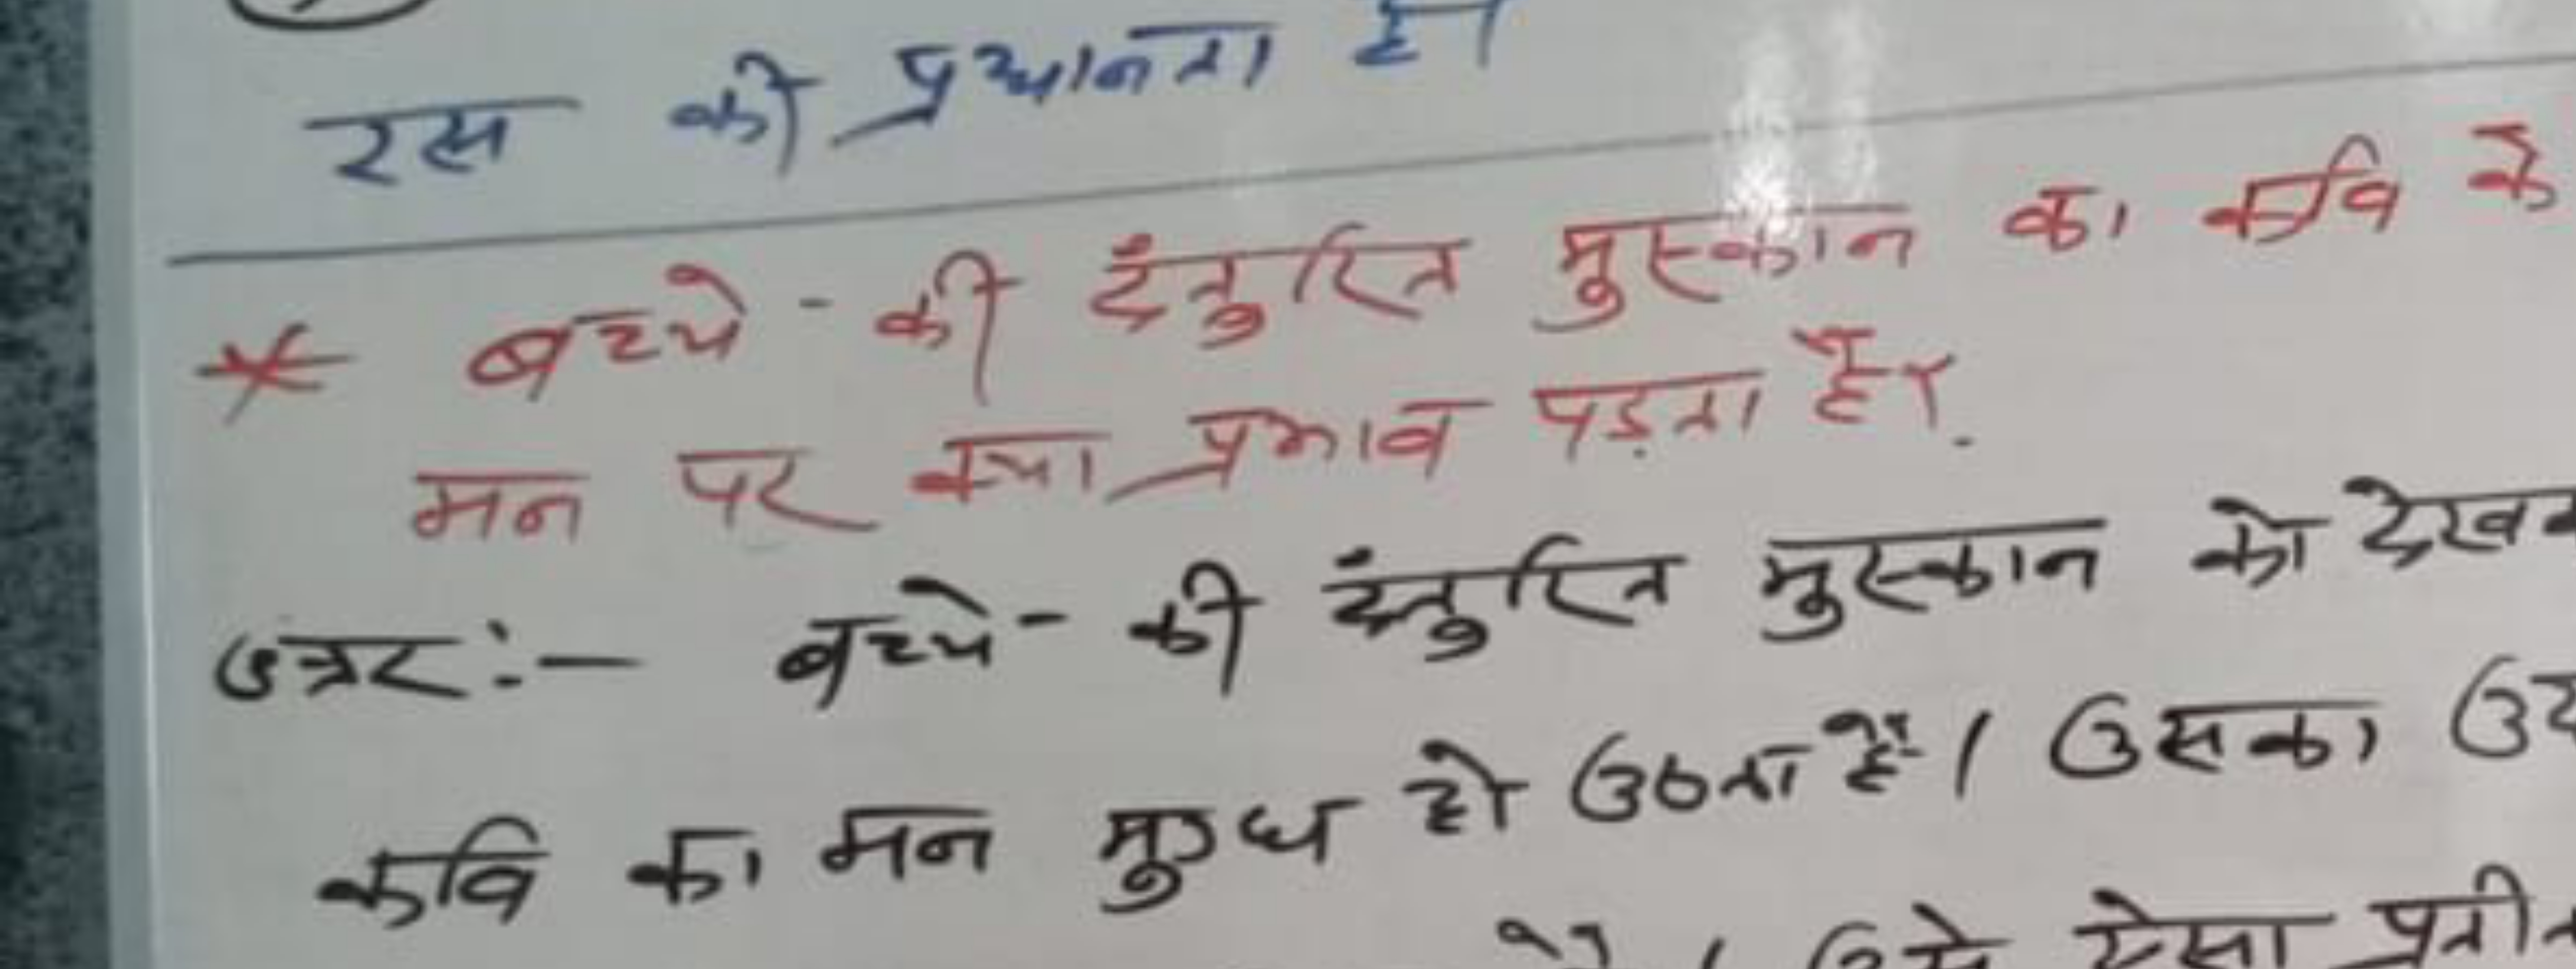 रस की प्रधानता है।
* बच्चे - की दंतुरित मुस्कान का कवि के
मन पर क्या प्रभाव पड़ता है?
उत्तर :- बच्चे - की दंतुरित मुस्कान को देख
कवि का मन मुग्ध हो उठता है। उसका
ऐसा